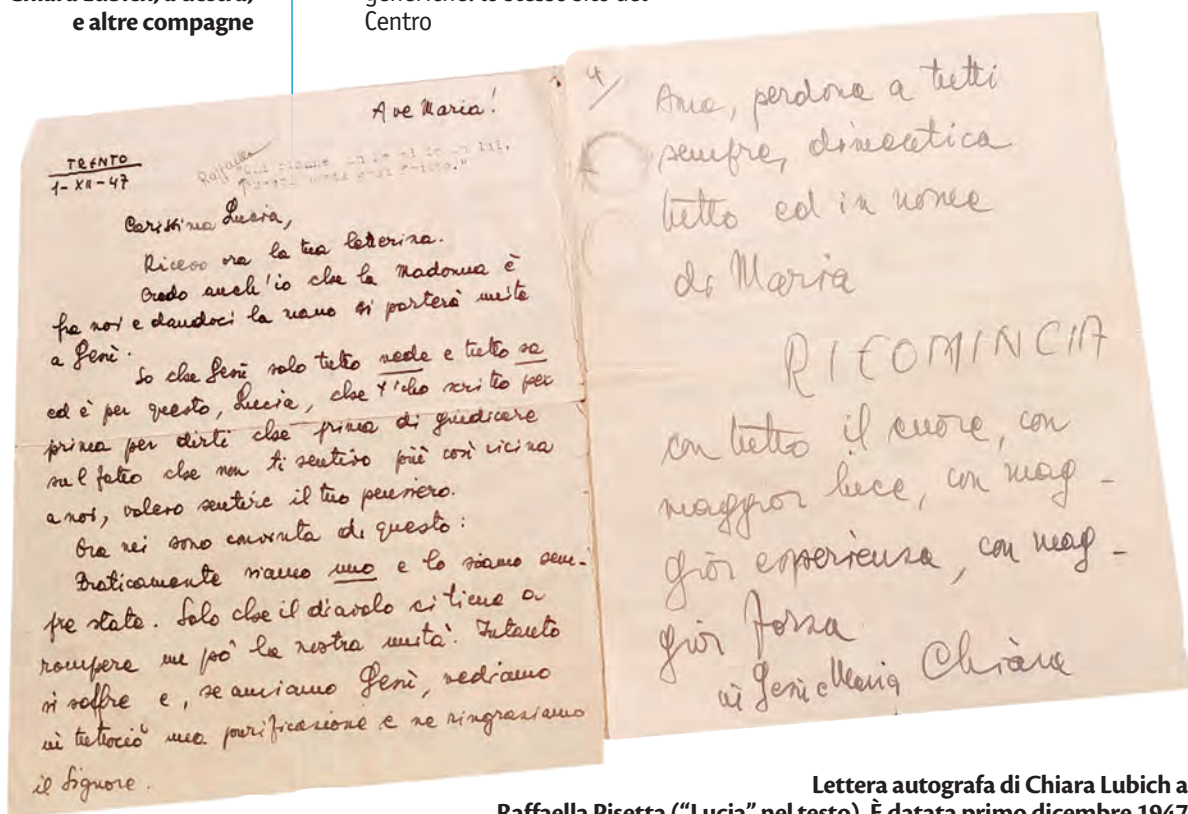 Chiara Lubich, a destra,
e altre compagne
Centro
Ave Maria!
TRENTO
1-XII-47
in lui,
Carissima Lucia,
Ricevo ora la tua letterina.
Credo anch'io che la Madonna è
fra noi e dandoci la mano ci porterà unite
a Gesù.
So che Gesù solo tutto vede e tutto sa
ed è per questo, Lucia, che t'ho scritto per
prima per dirti che prima di giudicare
sul fatto che non ti sentivo più così vicina
a noi, volevo sentire il tuo pensiero.
Ora mi sono convinta di questo:
Praticamente siamo uno e lo siamo sem-
pre state. Solo che il diavolo ci tiene a
rompere un pò la nostra unità. Intanto
si soffre e, se amiamo Gesù, vediamo
in tuttociò una purificazione e ne ringraziamo
il Signore.
4/
Ama, perdona a tutti
sempre, dimentica
tutto ed in nome
di Maria
RICOMINCIA
con tutto il cuore, con
maggior luce, con mag-
gior esperienza, con mag-
gior forza
in Gesù e Maria Chiara
Lettera autografa di Chiara Lubich a
Raffaella Pisetta ("Lucia" nel testo). È datata primo dicembre 1947